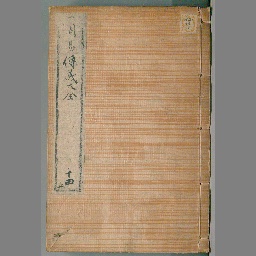 周易傳義大全
十四